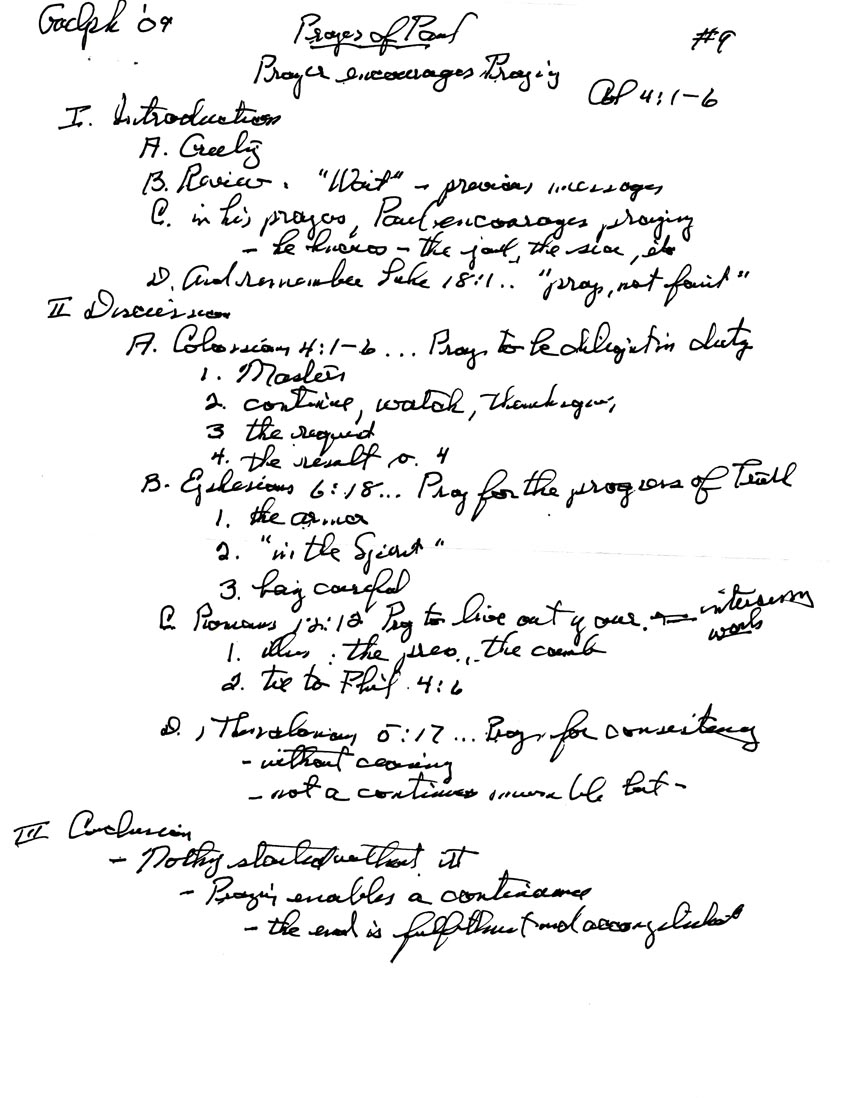 '09
Prayers of Paul
#9
Prayer encourages Praying
Col 4:1-6
I. Introduction
A. Greeting
B. Review. "Wait" - previous messages
C. in his prayers, Paul encourages praying
- he knows - the jail, the sea, etc
D. And remember Luke 18:1.. "pray, not faint"
II Discussion
A. Colossians 4:1-6... Pray to be diligent in duty
1. Masters
2. continue, watch, thanksgiving
3 the request
4. the result v. 4
B. Ephesians 6:18... Pray for the progress of Truth
1. the armor
2. "in the Spirit"
3. being careful
C. Romans 12:12 Pray to live out your
1. illus : the the comb
2. tie to Phil. 4:6
D. 1 Thessalonians 5:17... Pray for consistency
- without ceasing
- not a continuous but -
III Conclusion
- Nothing started without it
- Praying enables a continuance
- the end is and accomplished